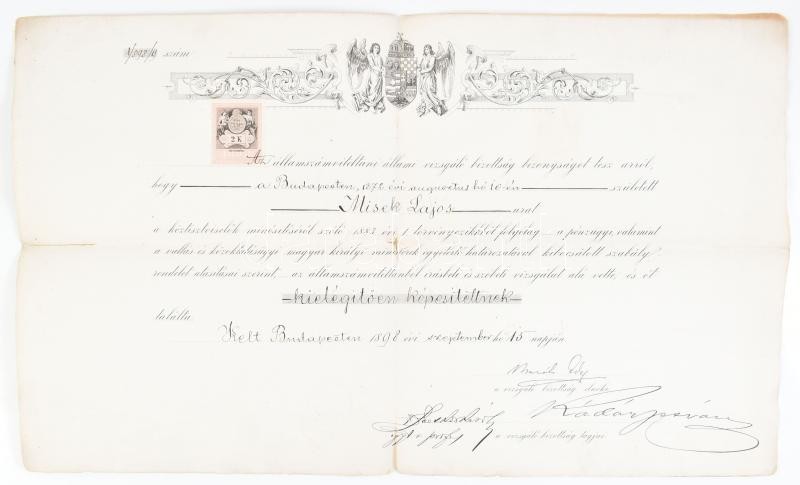 szám
2 K
Az államszámviteltani állami vizsgáló bizottság bizonyságot tesz arról,
hogy a Budapesten, 1872 évi augusztus hó 10-én született
Misek Lajos urat
a köztisztviselők minősítéséről szóló 1883. évi I. törvényczikkből folyólag a pénzügyi, valamint
a vallás és közoktatásügyi magyar királyi miniszterek egyetértő határozatával kibocsátott szabály-
rendelet utasításai szerint az államszámviteltanból írásbeli és szóbeli vizsgálat alá vette, és őt
kielégitően képesitettnek
találta.
Kelt Budapesten 1898 évi szeptember hó 15 napján
a vizsgáló bizottság elnöke
Kádár István
a vizsgáló bizottság tagjai